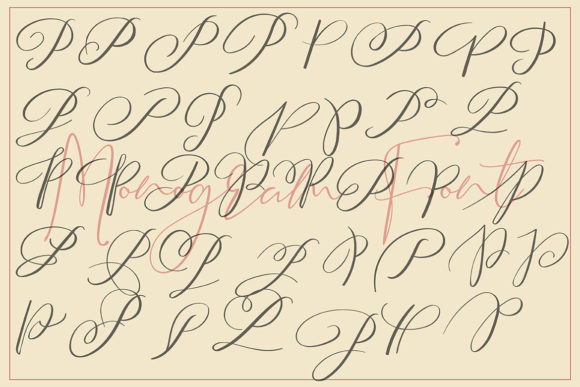 P P P P P P P P
P P P P P P P
Monogram Font
P P P P P P P P
P P P P P P P P
P P P P P P P